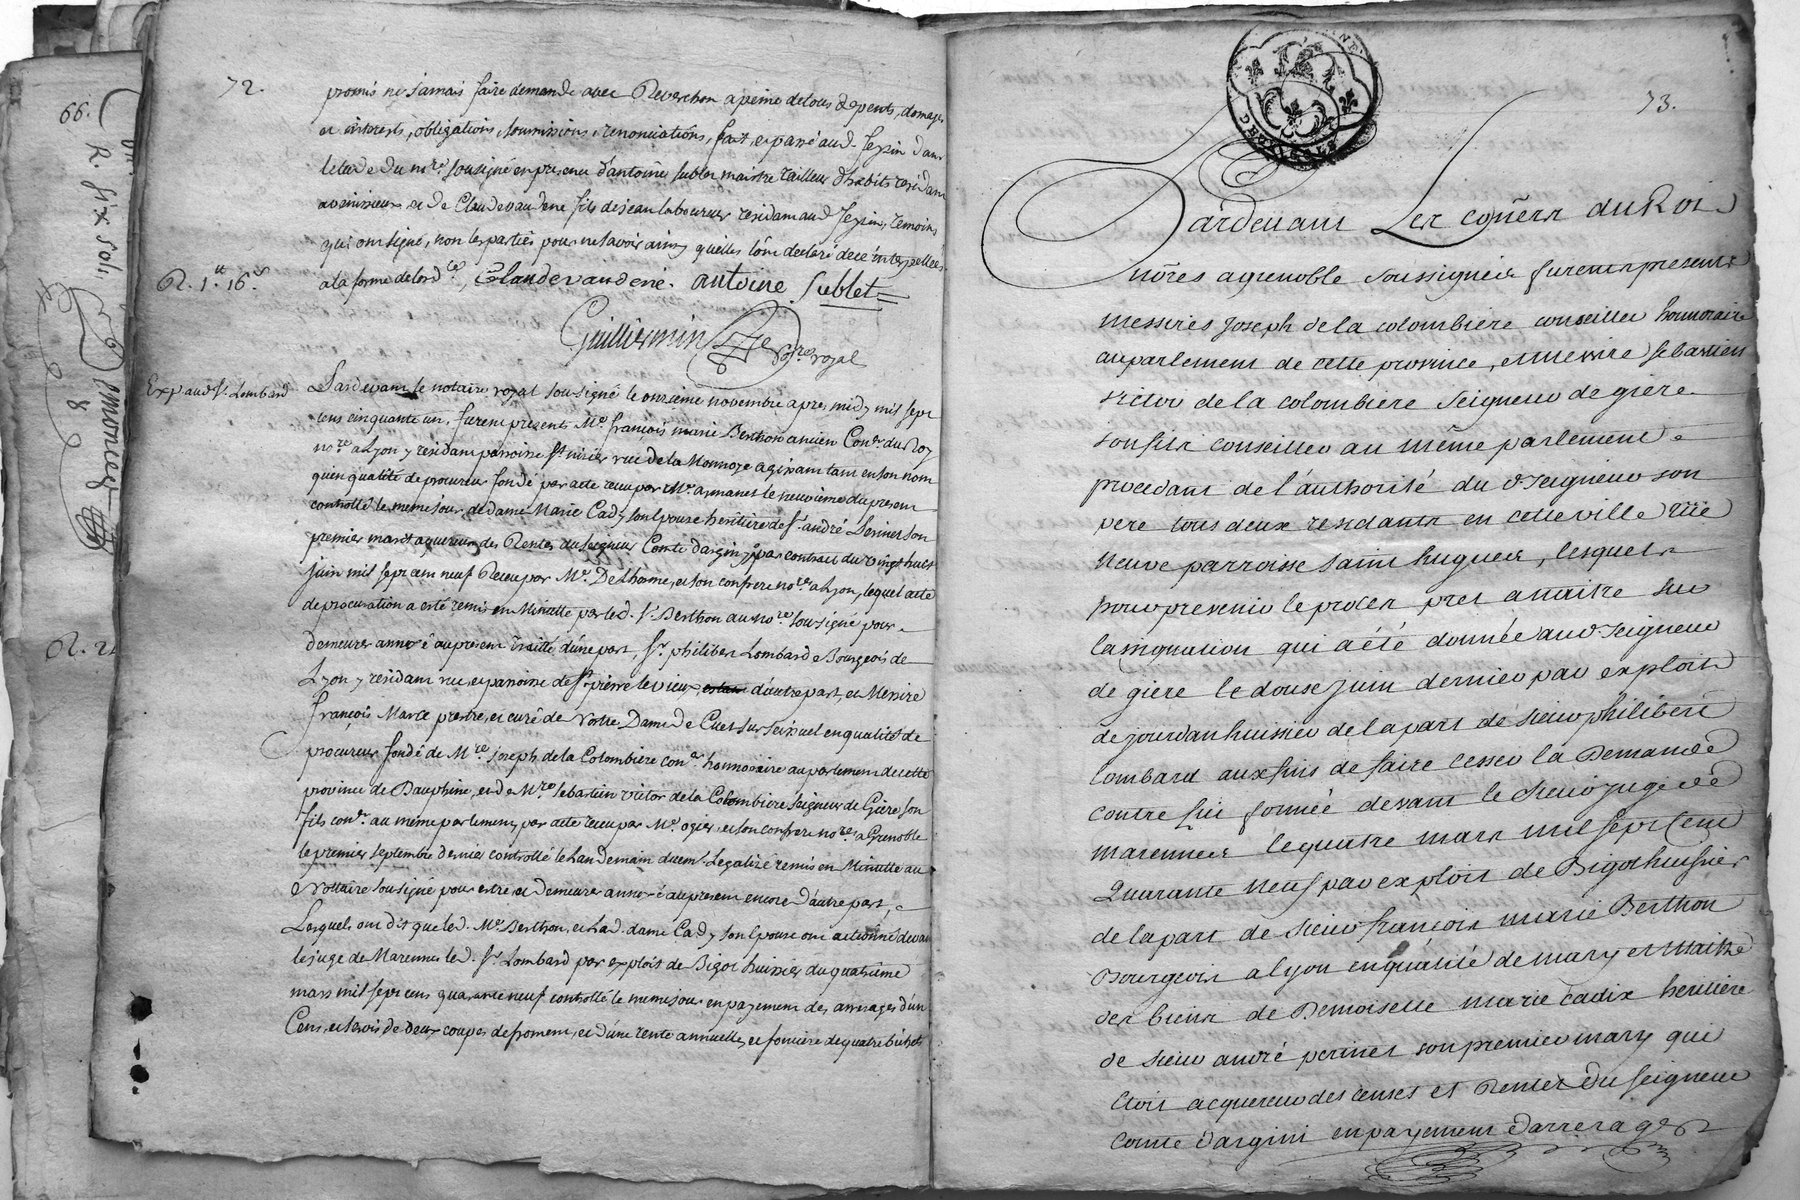 66.
72.
promis ne jamais faire demande avec Reverchon a peine de tous depents, domages
et interests, obligations, soumissions, renonciations, fait, et passé aud. Seyzin dans
letude du nore. sousigné en presence d'antoine sublet maistre tailleur d'habits residant
et de Claude vaudene fils de jean laboureur residant aud. Seyzin, temoins
qui ont signé, non les parties pour ne savoir ainsy quelles l'ont declaré de ce interpellées
a la forme de lordce, Claude vaudené. antoine Sublet
R. 1tt. 16s.
Guilliermin
Nore royal
Exp. aud sr. Lombard
Pardevant le notaire royal sousigné le onzieme novembre apres midy mil sept
cens cinquante un, furent presents Me. françois marie Berthon ancien Conr. du Roy
nore a Lyon y residant parroisse st. nizier rue de la Monnoye agissant tant en son nom
qu'en qualité de procureur fondé par acte recu par Me. le neuvieme du present
controllé le meme jour, de dame Marie Cady son Epouse heritiere de sr. andré Perinet son
premier mary aquereur des Rentes du seigneur Comte dargini, par contract du vingt huit
juin mil sept cent neuf Recu par Me. Delhorme, et son confrere nores a Lyon, lequel acte
de procuration a esté remis en Minutte par led. sr. Berthon au nore sousigné pour
demeurer annexé au present traitté d'une part, sr. philibert Lombard Bourgeois de
Lyon y residant rue, et parroisse de st. pierre le vieux d'autre part, et Messire
françois Marce prestre, et curé de Nostre Dame de Cuet sur Seissuel en qualité de
procureur fondé de Mre. Joseph de la Colombiere coner. honnoraire au parlement de cette
province de Dauphiné, et de Mre. sebastien victor de la Colombiere seigneur de Giere son
fils conr. au même parlement, par acte recu par Me. ogier, et son confrere nores a Grenoble
le premier septembre dernier controllé le landemain duem. legalizé remis en Minutte au
Nottaire sousigné pour estre et demeurer annexé au present encore d'autre part,
Lesquels ont dit que led. Me. Berthon, et lad. dame Cady son Epouse ont actionné devant
le juge de Marennes led. sr. Lombard par exploit de Bigot huissier du quatrieme
mars mil sept cens quarante neuf controllé le meme jour en payement des arrerages d'un
Cens, et servis de deux coupes de froment, et d'une rente annuelle, et fonciere de quatre bichets
73.
Pardevant Les coners du Roi
nores a grenoble soussignés furent presents
messires joseph de la colombiere conseiller honnoraire
au parlement de cette province, et messire sebastien
victor de la colombiere seigneur de giere
son fils conseiller au même parlement
procedant de l'authorité du d. seigneur son
pere tous deux residants en cette ville rüe
neuve parroisse saint hugues, lesquels
pour prevenir le procès prest a naitre sur
lassignation qui a été donnée au d. seigneur
de giere le douse juin dernier par exploit
de jourdan huissier de la part de sieur philibert
lombard aux fins de faire cesser la Demande
contre lui formée devant le sieur juge de
marennes le quatre mars mil sept cent
quarante neuf par exploit de Bigot huissier
de la part de sieur françois marie Berthon
Bourgeois a lyon en qualité de mary et maitre
des biens de Demoiselle marie cadix heritiere
de sieur andré perinet son premier mary qui
etoit acquereur des censes et Rentes du seigneur
comte dargini en payement darrerages